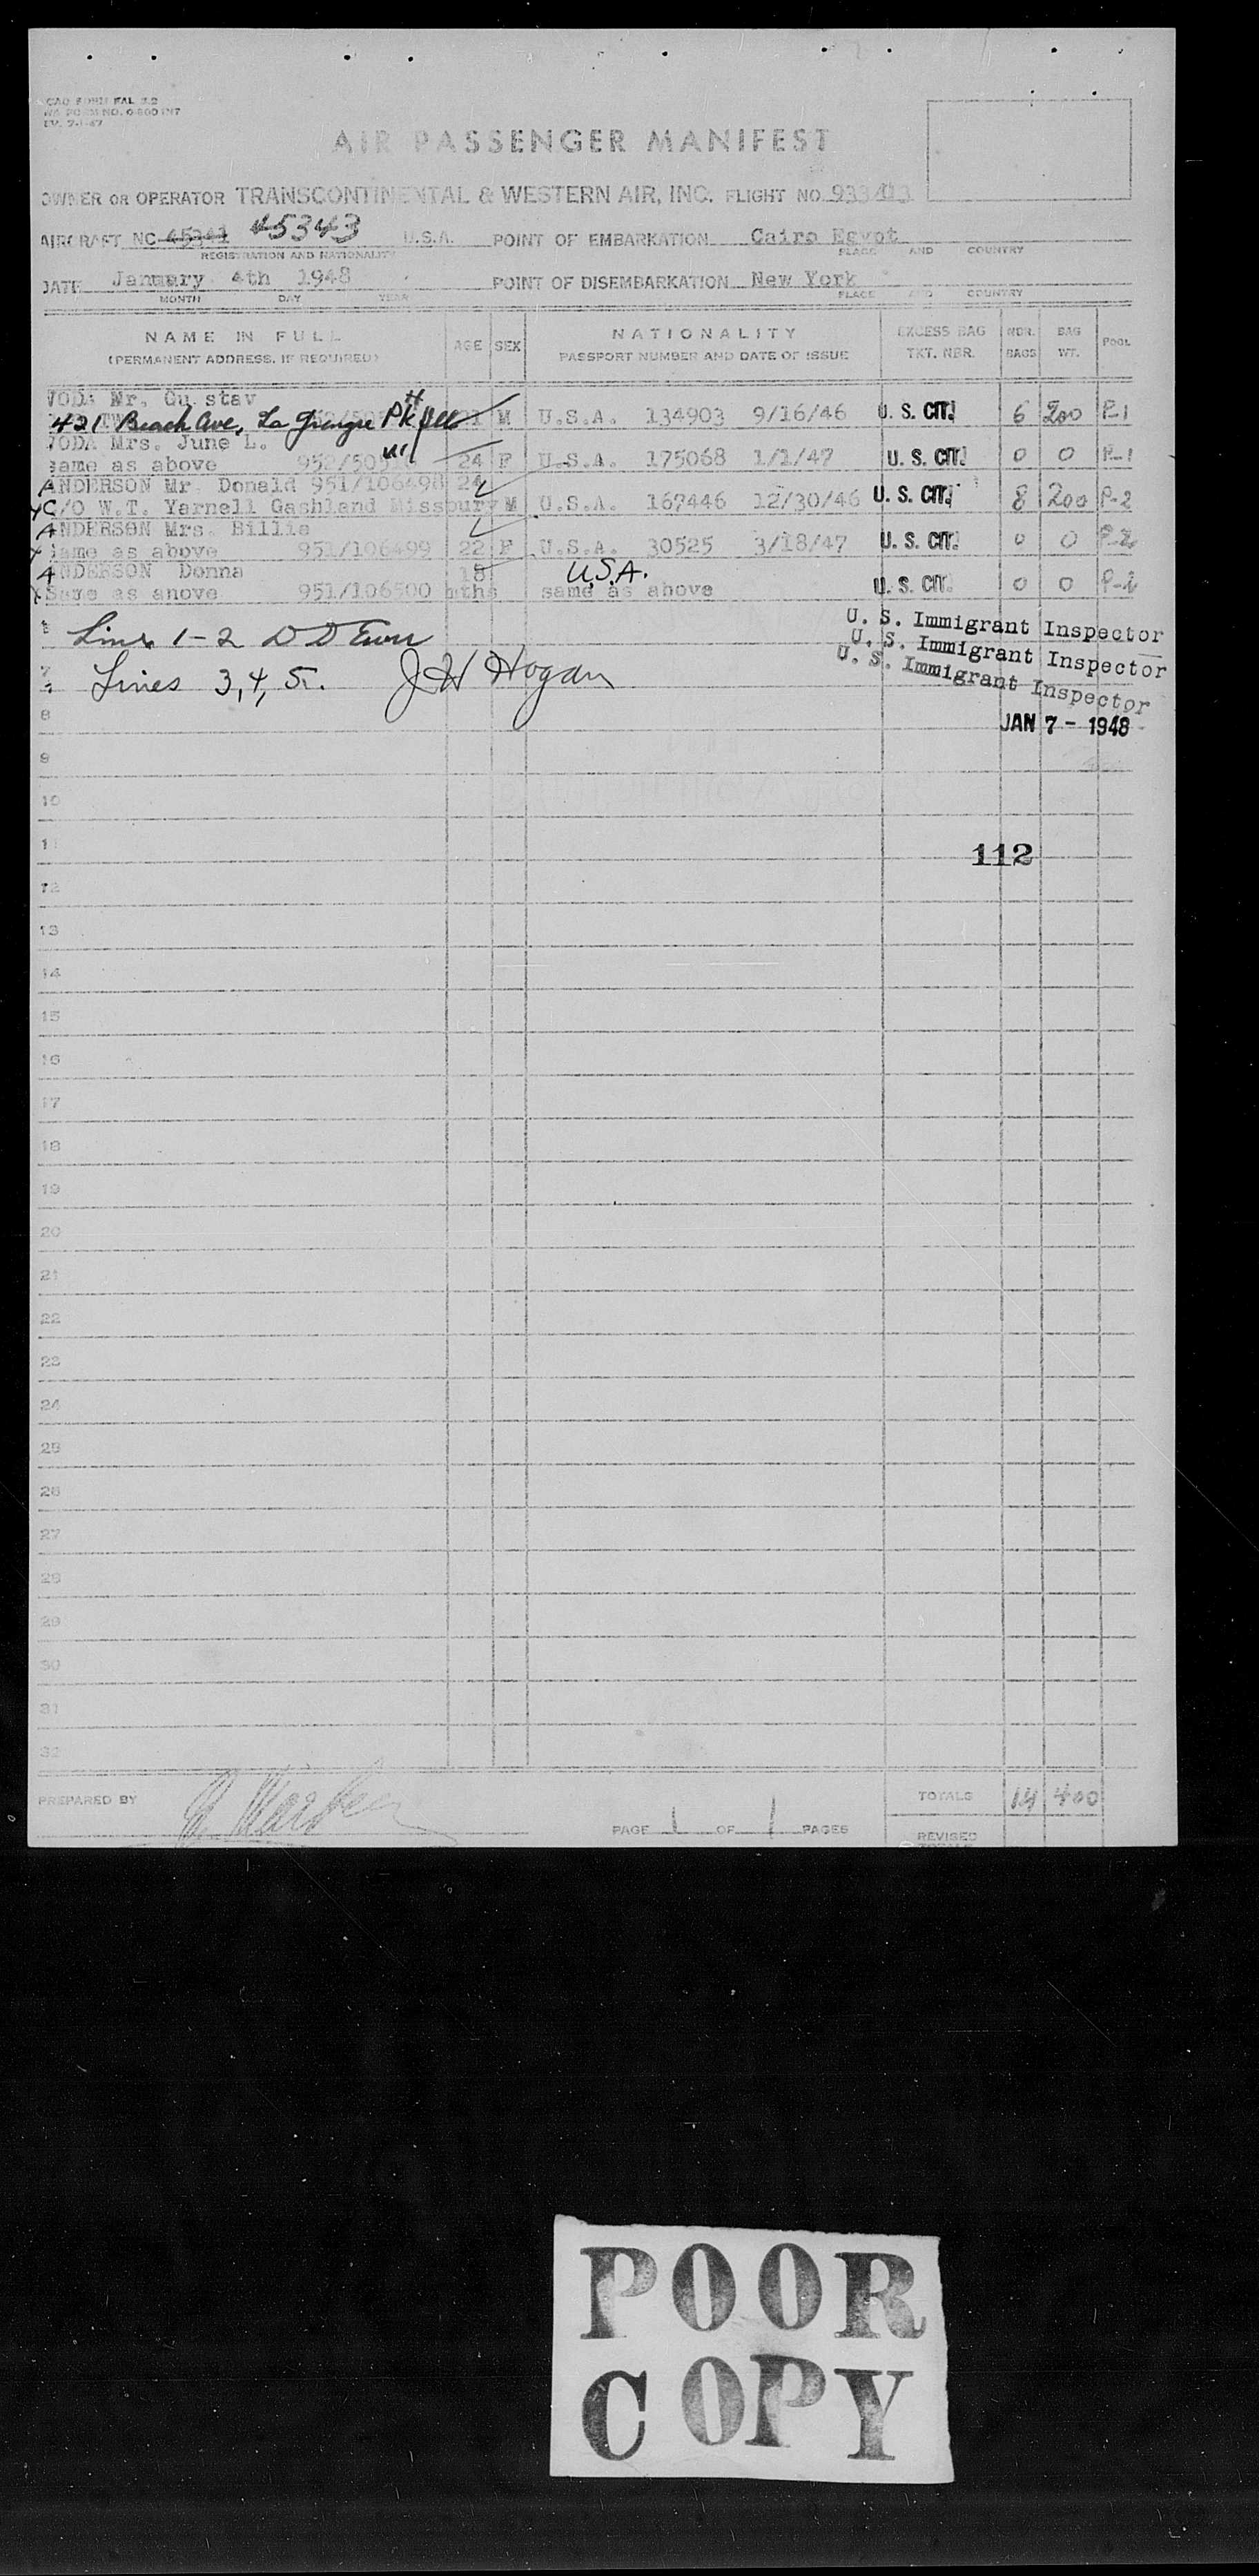 AIR PASSENGER MANIFEST
OWNER OR OPERATOR TRANSCONTINENTAL & WESTERN AIR, INC. FLIGHT NO.
AIRCRAFT NC 45341 45343 U.S.A. POINT OF EMBARKATION Cairo Egypt
REGISTRATION AND NATIONALITY PLACE AND COUNTRY
DATE January 4th 1948 POINT OF DISEMBARKATION New York
MONTH DAY YEAR PLACE AND COUNTRY
NAME IN FULL AGE SEX NATIONALITY EXCESS BAG NBR. BAG POOL
(PERMANENT ADDRESS, IF REQUIRED) PASSPORT NUMBER AND DATE OF ISSUE TKT. NBR. BAGS WT.
VODA Mr. Gu stav
421 Beach Ave, La Grange Pk M U.S.A. 134903 9/16/46 U. S. CIT. 6 200 P-1
VODA Mrs. June L.
same as above 24 F U.S.A. 175068 1/1/47 U. S. CIT. 0 0 P-1
ANDERSON Mr. Donald 951/106498 24
C/O W.T. Yarnell Gashland Missoury M U.S.A. 167446 12/30/46 U. S. CIT. 8 200 P-2
ANDERSON Mrs. Billie
same as above 951/106499 22 F U.S.A. 30525 3/18/47 U. S. CIT. 0 0 P-2
ANDERSON Donna 18 U.S.A.
Same as anove 951/106500 mths same as above U. S. CIT. 0 0 P-2
U. S. Immigrant Inspector
Lines 1-2 U. S. Immigrant Inspector
Lines 3, 4, 5. J H Hogan U. S. Immigrant Inspector
8 JAN 7 - 1948
9
10
11 112
12
13
14
15
16
17
18
19
20
21
22
23
24
25
26
27
28
29
30
31
32
PREPARED BY TOTALS 14 400
PAGE 1 OF 1 PAGES REVISED
POOR
COPY